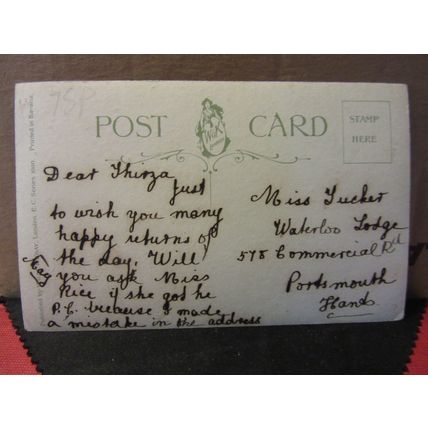 75P
POST CARD
STAMP
HERE
Dear Thirza
Just
to wish you many
happy returns of
the day. Will
you ask Miss
Rice if she got he
P.C. because I made
a mistake in the address
May
Miss Tucker
Waterloo Lodge
578 Commercial Rd
Portsmouth
Hants
London. E.C. Series
Printed in Bavaria